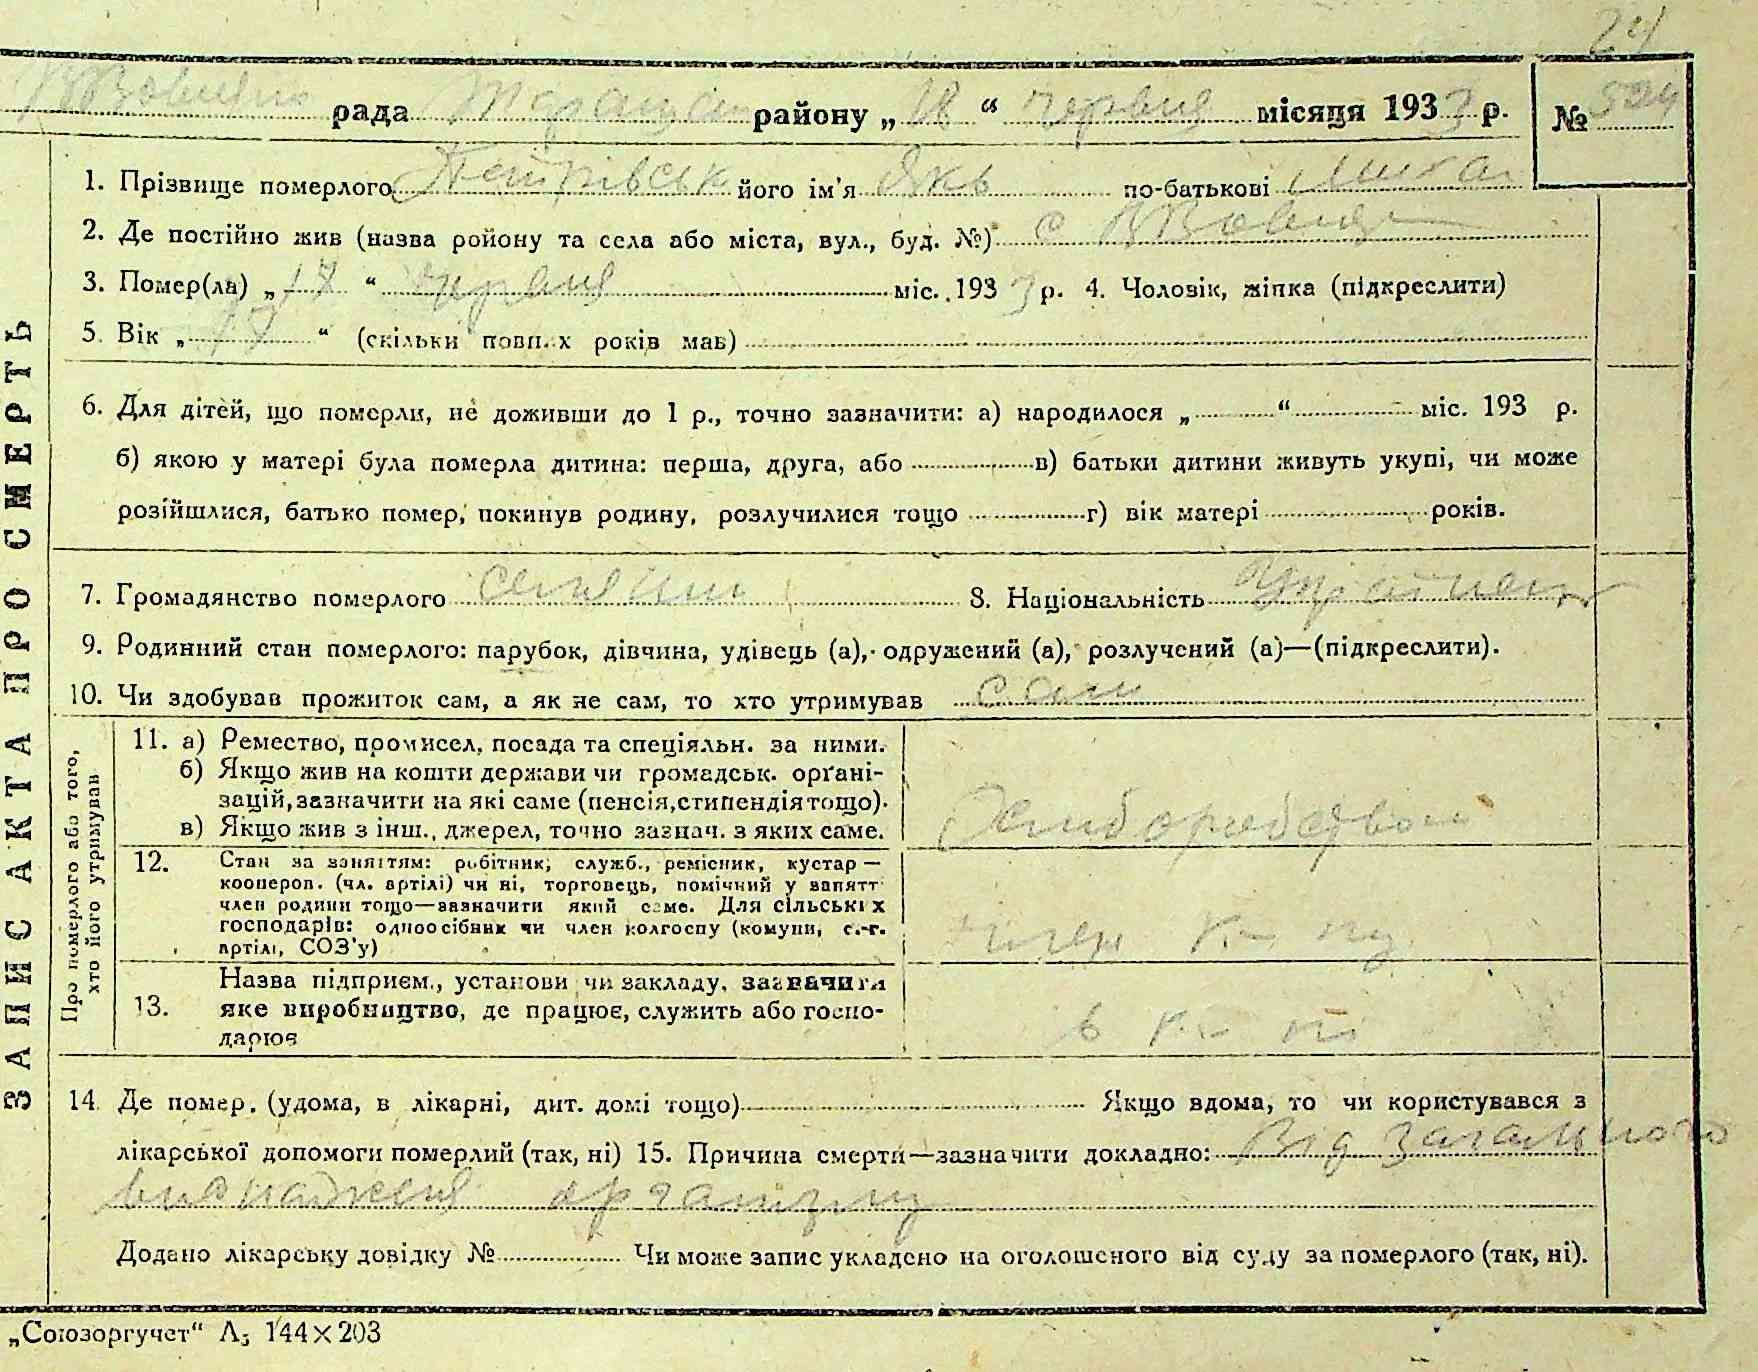 24
В Вовнянс рада Таращан району „ 18 “ червня місяця 1933 р. № 524
1. Прізвище померлого Петрівськ його ім'я Яків по-батькові Михай
2. Де постійно жив (назва ройону та села або міста, вул., буд. №) с В Вовнян
3. Помер(ла) „ 17 “ червня міс. 1933 р. 4. Чоловік, жінка (підкреслити)
5. Вік „ 17 “ (скільки повн.х років мав)
6. Для дітей, що померли, не доживши до 1 р., точно зазначити: а) народилося „ “ міс. 193 р.
б) якою у матері була померла дитина: перша, друга, або в) батьки дитини живуть укупі, чи може
розійшлися, батько помер, покинув родину, розлучилися тощо г) вік матері років.
7. Громадянство померлого селянин 8. Національність Українець
9. Родинний стан померлого: парубок, дівчина, удівець (а), одружений (а), розлучений (а)—(підкреслити).
10. Чи здобував прожиток сам, а як не сам, то хто утримував сам
11. а) Ремество, промисел, посада та спеціяльн. за ними.
б) Якщо жив на кошти держави чи громадськ. орґані-
зацій, зазначити на які саме (пенсія, стипендія тощо).
в) Якщо жив з інш., джерел, точно зазнач. з яких саме.
Хліборобством
12. Стан за заняттям: робітник, служб., ремісник, кустар —
коопероп. (чл. артілі) чи ні, торговець, помічний у занятт
член родини тощо—зазначити який саме. Для сільських
господарів: одноосібник чи член колгоспу (комуни, с.-г.
артілі, СОЗ'у)
член к-пу
13. Назва підприєм., установи чи закладу, зазначити
яке виробництво, де працює, служить або госпо-
дарює
в к-пі
14. Де помер. (удома, в лікарні, дит. домі тощо) Якщо вдома, то чи користувався з
лікарської допомоги померлий (так, ні) 15. Причина смерти—зазначити докладно: Від загального
виснаження організму
Додано лікарську довідку № Чи може запис укладено на оголошеного від суду за померлого (так, ні).
„Союзоргучет“ А5 144×203
ЗАПИС АКТА ПРО СМЕРТЬ
Про померлого або того,
хто його утримував